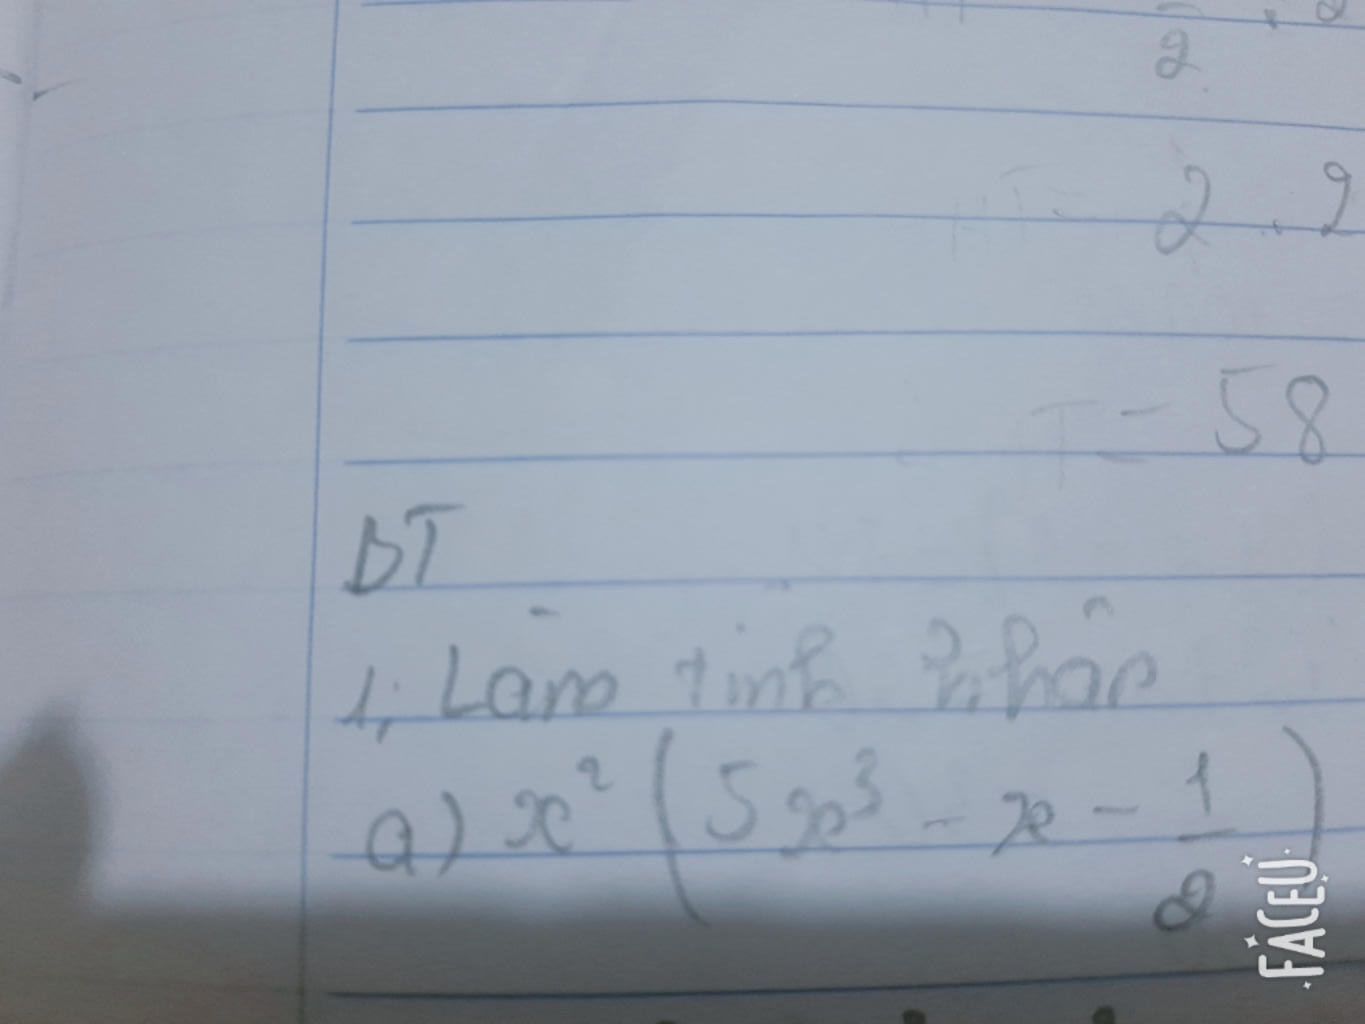 2
2 . 2
= 58
BT
1, Làm tính nhân
a) x² (5x³ - x - 1/2)
FACEU